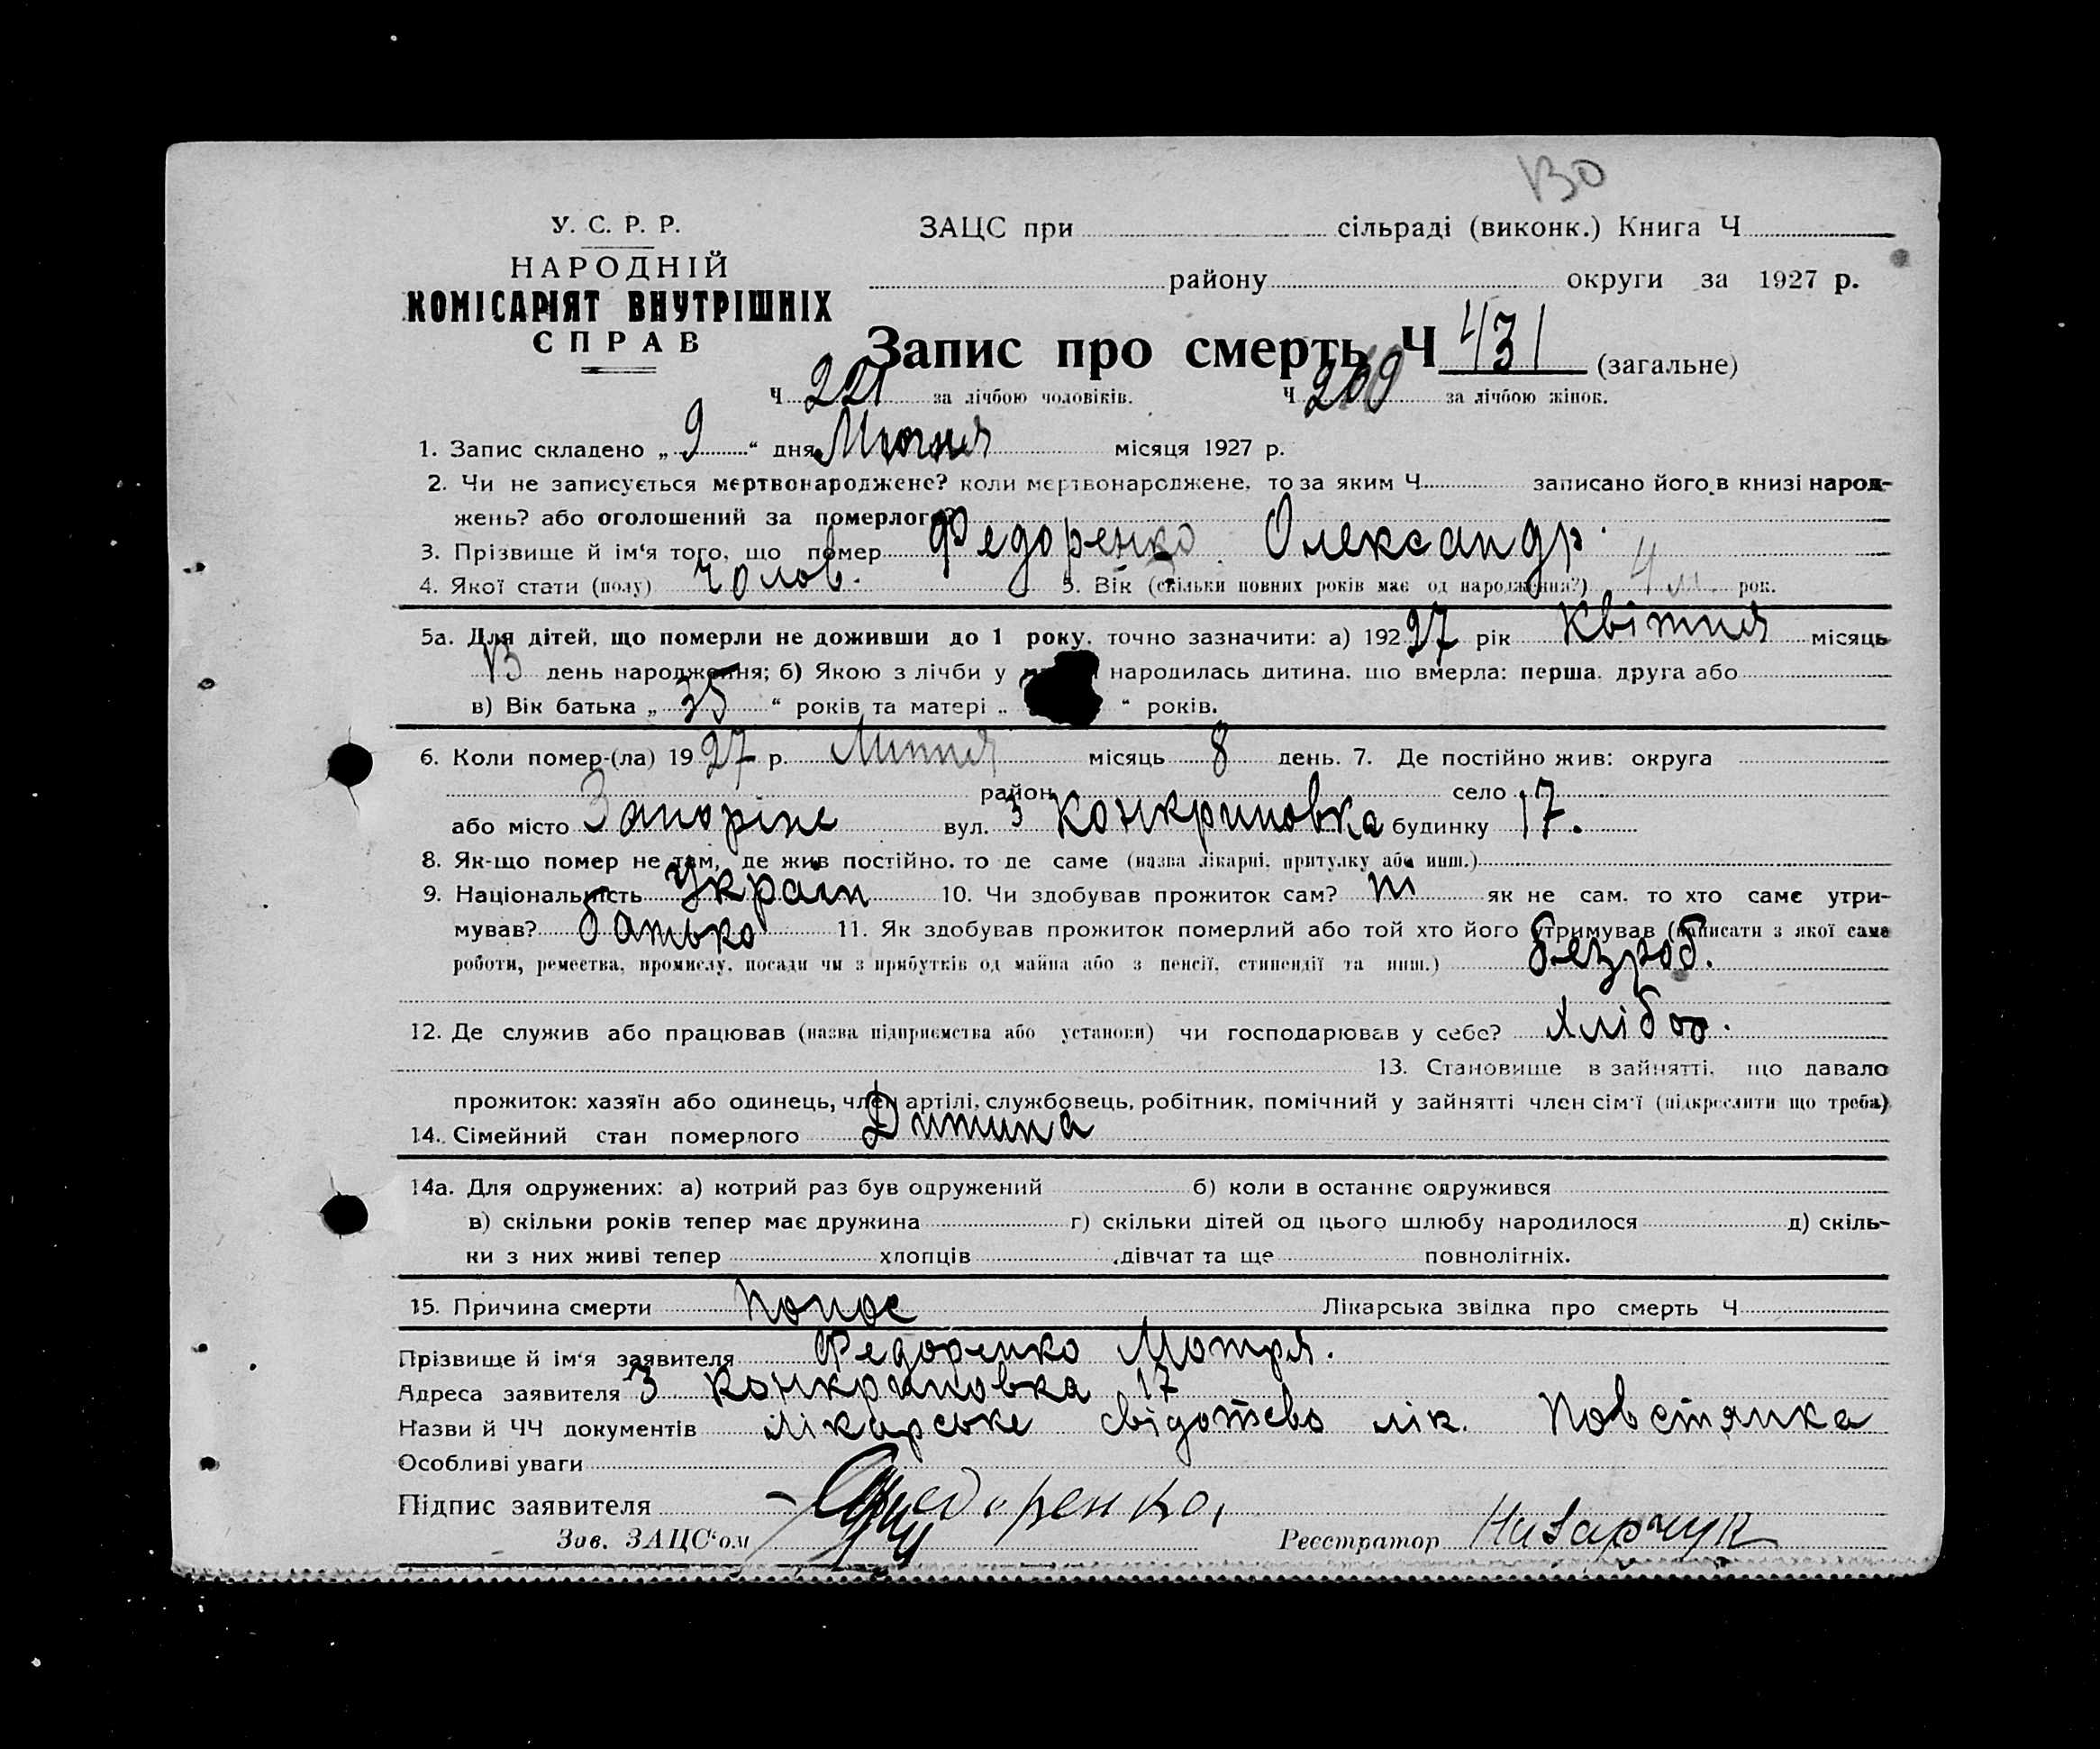 130
У. С. Р. Р.
НАРОДНІЙ
КОМІСАРІЯТ ВНУТРІШНІХ
СПРАВ
ЗАЦС при сільраді (виконк.) Книга Ч
району округи за 1927 р.
Запис про смерть Ч 431 (загальне)
Ч 221 за лічбою чоловіків. Ч 209 за лічбою жінок.
1. Запис складено „ 9 “ дня місяця 1927 р.
2. Чи не записується мертвонароджене? коли мертвонароджене, то за яким Ч записано його в книзі народ-
жень? або оголошений за померлого?
3. Прізвище й ім‘я того, що помер Федоренко Олександр.
4. Якої стати (полу) чолов. 5. Вік (скільки повних років має од народження?) 4 м. рок.
5а. Для дітей, що померли не доживши до 1 року, точно зазначити: а) 192 27 рік Квітня місяць
13 день народження; б) Якою з лічби у народилась дитина, що вмерла: перша, друга або
в) Вік батька „ 25 “ років та матері „ “ років.
6. Коли помер-(ла) 19 27 р. Липня місяць 8 день. 7. Де постійно жив: округа
район село
або місто Запоріже вул. 3 Конкриновка будинку 17.
8. Як-що помер не там, де жив постійно, то де саме (назва лікарні, притулку або инш.)
9. Національність Україн 10. Чи здобував прожиток сам? ні як не сам, то хто саме утри-
мував? батько 11. Як здобував прожиток померлий або той хто його утримував (написати з якої саме
роботи, ремества, промислу, посади чи з прибутків од майна або з пенсії, стипендії та инш.) безроб.
12. Де служив або працював (назва підприємства або установи) чи господарював у себе? хлібор.
13. Становище в зайнятті, що давало
прожиток: хазяїн або одинець, член артілі, службовець, робітник, помічний у зайнятті член сім‘ї (підкреслити що треба)
14. Сімейний стан померлого Дитина
14а. Для одружених: а) котрий раз був одружений б) коли в останнє одружився
в) скільки років тепер має дружина г) скільки дітей од цього шлюбу народилося д) скіль-
ки з них живі тепер хлопців дівчат та ще повнолітніх.
15. Причина смерти понос Лікарська звідка про смерть Ч
Прізвище й ім‘я заявителя Федоренко Мотря.
Адреса заявителя 3 Конкриновка 17
Назви й ЧЧ документів лікарське свідотсво лік. Повстянка
Особливі уваги
Підпис заявителя Федоренко,
Зав. ЗАЦС‘ом Реєстратор Назарчук